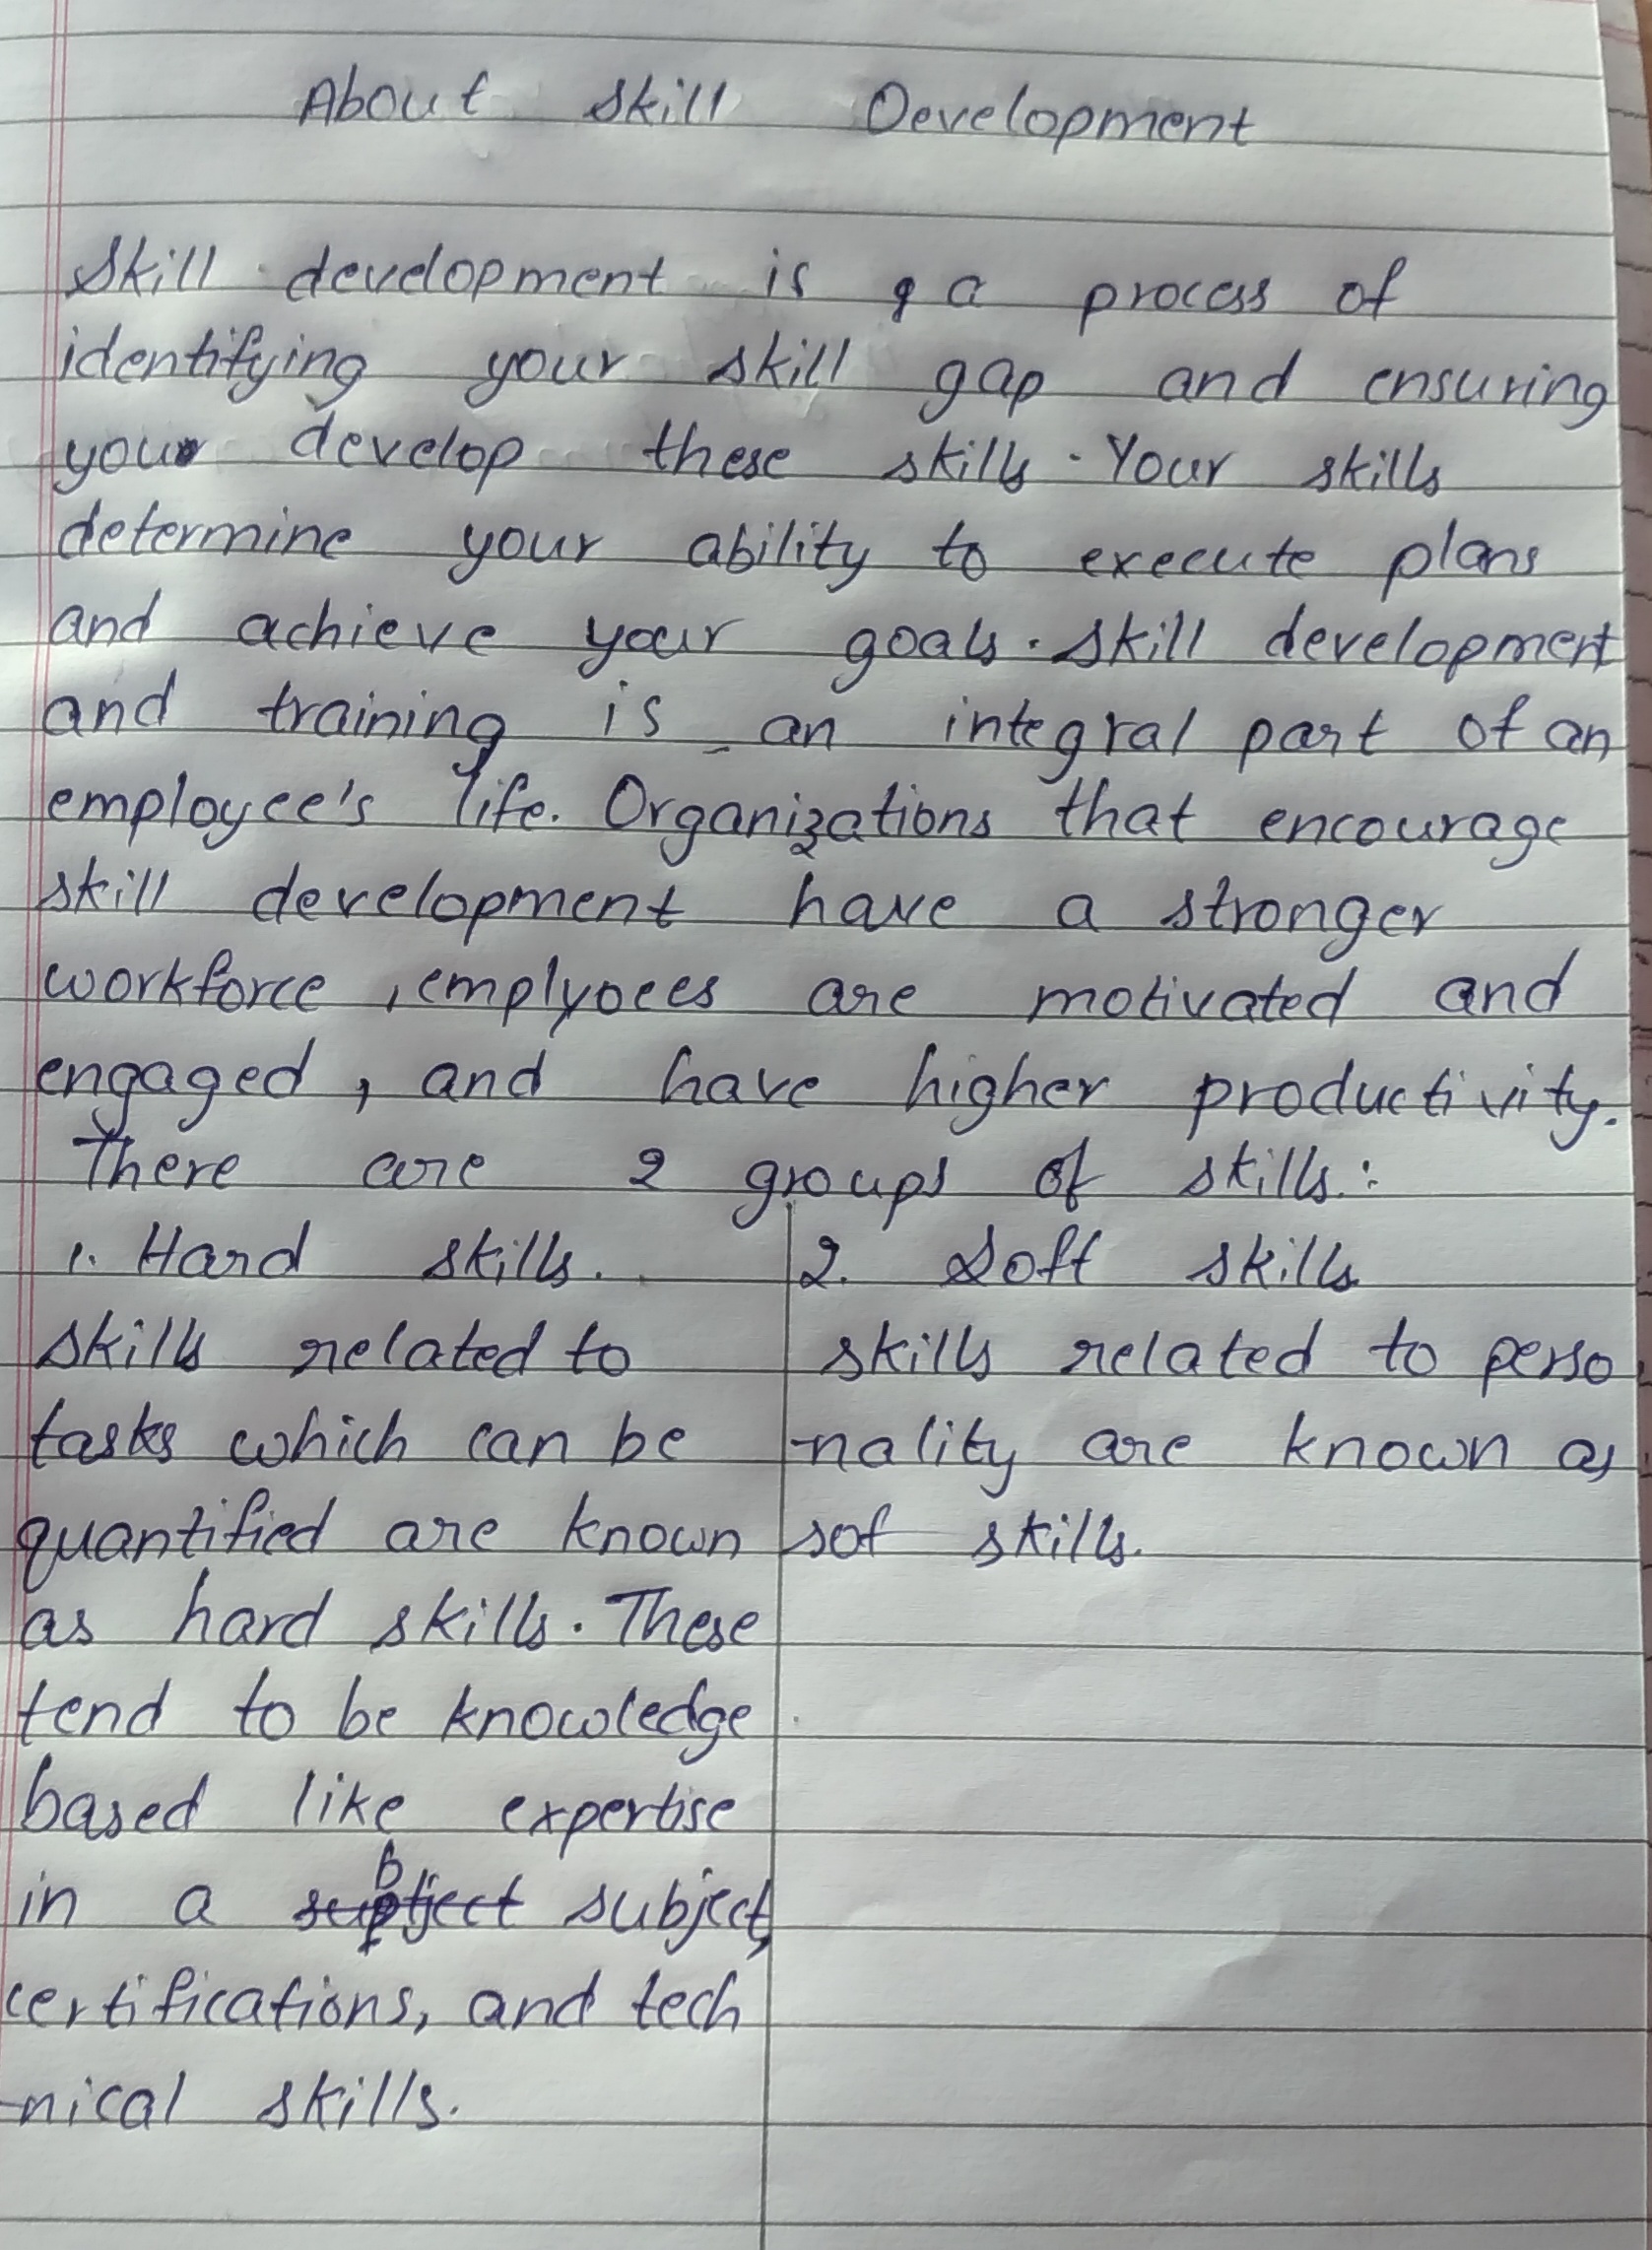 About Skill Development
Skill development is a process of
identifying your skill gap and ensuring
you develop these skills. Your skills
determine your ability to execute plans
and achieve your goals. Skill development
and training is an integral part of an
employee's life. Organizations that encourage
skill development have a stronger
workforce, emplyoees are motivated and
engaged, and have higher productivity.
There are 2 groups of skills:
1. Hard skills.
skills related to
tasks which can be
quantified are known
as hard skills. These
tend to be knowledge
based like expertise
in a subject,
certifications, and tech
-nical skills.
2. Soft skills
skills related to perso
-nality are known as
sof skills.